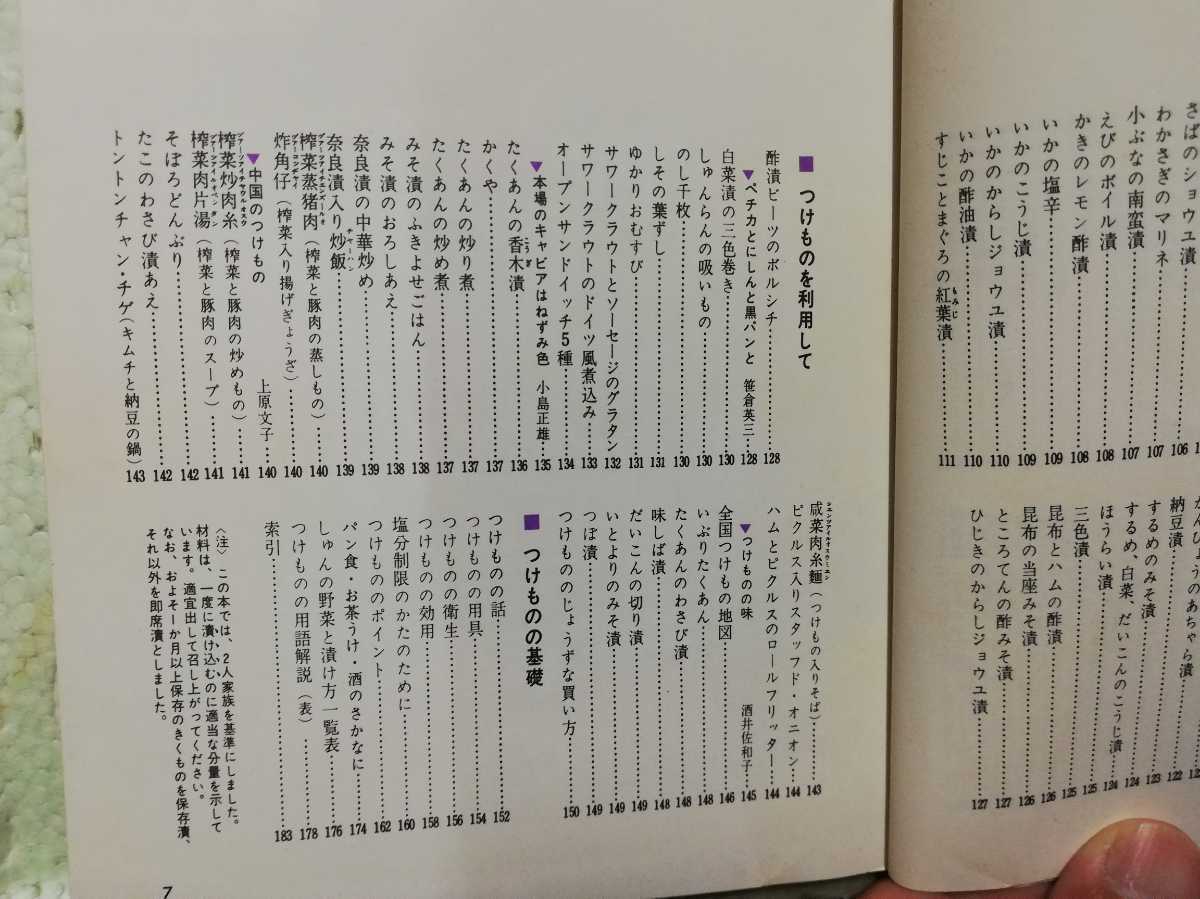 さばのショウユ漬……106
わかさぎのマリネ……107
小ぶなの南蛮漬……107
えびのボイル漬……108
かきのレモン酢漬……108
いかの塩辛……109
いかのこうじ漬……109
いかのからしジョウユ漬……110
いかの酢油漬……110
すじことまぐろの紅葉漬……111
かんぴょうのあちゃら漬……122
納豆漬……123
するめのみそ漬……124
するめ、白菜、だいこんのこうじ漬……124
ほうらい漬……125
三色漬……125
昆布とハムの酢漬……126
昆布の当座みそ漬……126
ところてんの酢みそ漬……127
ひじきのからしジョウユ漬……127
■ つけものを利用して
酢漬ビーツのボルシチ……128
▼ペチカとにしんと黒パンと 笹倉英三……128
白菜漬の三色巻き……130
しゅんらんの吸いもの……130
のし千枚……130
しその葉ずし……131
ゆかりおむすび……131
サワークラウトとソーセージのグラタン……132
サワークラウトのドイツ風煮込み……133
オープンサンドイッチ5種……134
▼本場のキャビアはねずみ色 小島正雄……135
たくあんの香木漬……136
かくや……137
たくあんの炒り煮……137
たくあんの炒め煮……137
みそ漬のふきよせごはん……138
みそ漬のおろしあえ……138
奈良漬の中華炒め……139
奈良漬入り炒飯……139
榨菜蒸猪肉(榨菜と豚肉の蒸しもの)……140
炸角仔(榨菜入り揚げぎょうざ)……140
▼中国のつけもの 上原文子……140
榨菜炒肉糸(榨菜と豚肉の炒めもの)……141
榨菜肉片湯(榨菜と豚肉のスープ)……141
そぼろどんぶり……142
たこのわさび漬あえ……142
トントンチャン・チゲ(キムチと納豆の鍋)……143
咸菜肉糸麺(つけもの入りそば)……143
ピクルス入りスタッフド・オニオン……144
ハムとピクルスのロールフリッター……144
▼つけものの味 酒井佐和子……145
全国つけもの地図……146
いぶりたくあん……148
たくあんのわさび漬……148
味しば漬……148
だいこんの切り漬……149
いとよりのみそ漬……149
つぼ漬……149
つけもののじょうずな買い方……150
■ つけものの基礎
つけものの話……152
つけものの用具……154
つけものの衛生……156
つけものの効用……158
塩分制限のかたのために……160
つけもののポイント……162
パン食・お茶うけ・酒のさかなに……174
しゅんの野菜と漬け方一覧表……176
つけものの用語解説(表)……178
索引……183
〈注〉この本では、2人家族を基準にしました。
材料は、一度に漬け込むのに適当な分量を示して
います。適宜出して召し上がってください。
なお、およそ一か月以上保存のきくものを保存漬、
それ以外を即席漬としました。
7